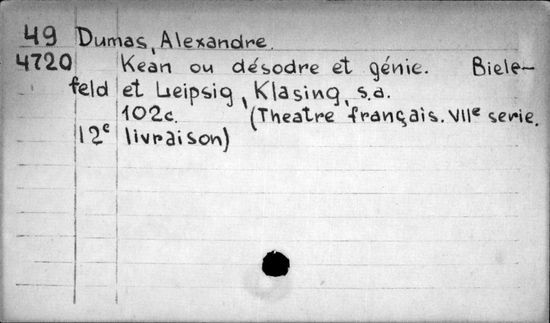 49 Dumas, Alexandre.
4720 Kean ou désodre et génie. Biele-
feld et Leipsig, Klasing, s.a.
102c. (Theatre français. VIIe serie.
12e livraison)